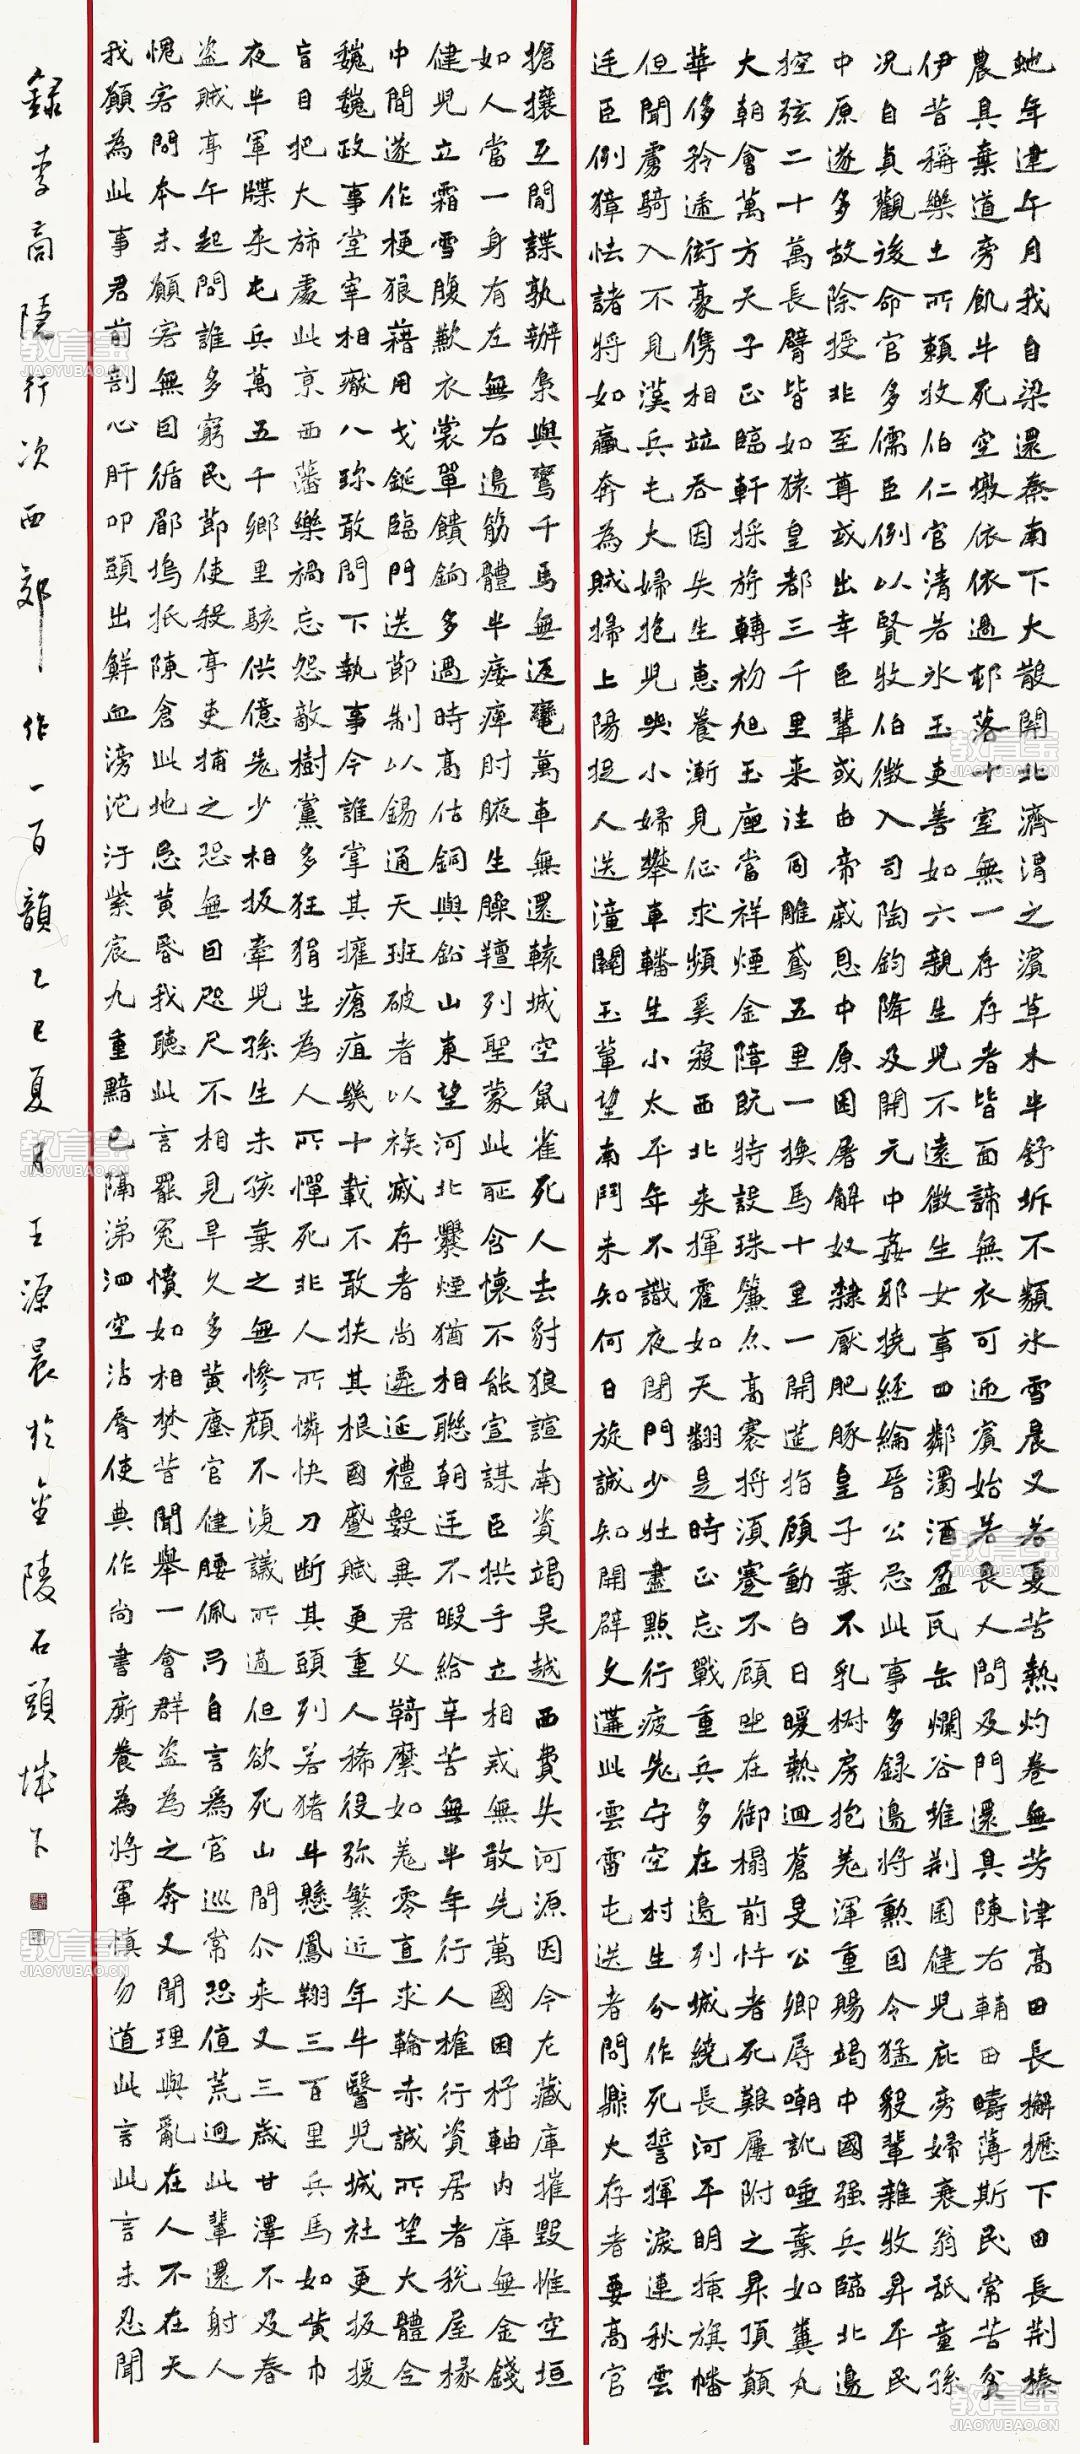 虵年建午月我自梁還秦南下大散關北濟渭之濱草木半舒坼不類冰雪晨又若夏苦熱灼卷無芳津高田長檞櫪下田長荊榛
農具棄道旁飢牛死空墩依依過邨落十室無一存存者皆面諦無衣可迎賓始若畏人問及門還具陳右輔田疇薄斯民常苦貧
伊昔稱樂土所賴牧伯仁官清若氷玉吏善如六親生兒不遠徵生女事四鄰濁酒盈瓦缶爛谷堆荊囷健兒庇旁婦衰翁舐童孫
況自貞觀後命官多儒臣例以賢牧伯徵入司陶鈞降及開元中姦邪撓經綸晉公忌此事多録邊將勳因令猛毅輩雜牧昇平民
中原遂多故除授非至尊或出幸臣輩或由帝戚恩中原困屠解奴隸厭肥豚皇子棄不乳椒房抱羌渾重賜竭中國强兵臨北邊
控弦二十萬長臂皆如猿皇都三千里来往同雕鳶五里一換馬十里一開筵指顧動白日暖熱迴蒼旻公卿辱嘲訕唾棄如糞丸
大朝會萬方天子正臨軒採旂轉初旭玉座當祥煙金障既特設珠簾亦高褰捋須蹇不顧坐在御榻前忤者死艱屨附之昇頂顛
華侈矜遞衒豪儁相竝吞因失生惠養漸見征求頻奚寇西北来揮霍如天翻是時正忘戰重兵多在邊列城繞長河平明插旗幡
但聞虜騎入不見漢兵屯大婦抱兒哭小婦攀車轓生小太平年不識夜閉門少壯盡點行疲老守空村生分作死誓揮淚連秋雲
廷臣例獐怯諸將如羸奔為賊掃上陽捉人送潼關玉輦望南斗未知何日旋誠知開辟久遘此雲雷屯送者問縣大存者要高官
搶攘互間諜孰辨梟與鸞千馬無返轡萬車無還轅城空鼠雀死人去豺狼諠南資竭吳越西費失河源因今左藏庫摧毀惟空垣
如人當一身有左無右邊筋體半痿痺肘腋生臊羶列聖蒙此恥含懷不能宣謀臣拱手立相戒無敢先萬國困杼軸內庫無金錢
健兒立霜雪腹歉衣裳單饋餉多過時高估銅與鉛山東望河北爨煙猶相聯朝廷不暇給辛苦無半年行人榷行資居者稅屋椽
中間遂作梗狼藉用戈鋋臨門送節制以錫通天班破者以族滅存者尚遷延禮數異君父羈縻如羌零直求輸赤誠所望大體全
巍巍政事堂宰相厭八珎敢問下執事今誰掌其權瘡疽幾十載不敢抉其根國蹙賦更重人稀役弥繁近年牛醫兒城社更扳援
盲目把大斾處此京西藩樂禍忘怨敵樹黨多狂狷生為人所憚死非人所憐快刀斷其頭列若猪牛懸鳳翔三百里兵馬如黃巾
夜半軍牒来屯兵萬五千鄉里駭供億老少相扳牽兒孫生未孩棄之無慘顏不復議所適但欲死山間尒来又三歲甘澤不及春
盜賊亭午起問誰多窮民節使殺亭吏捕之恐無因咫尺不相見旱久多黃塵官健腰佩弓自言爲官巡常恐值荒迥此輩還射人
愧客問本末願客無因循郿塢抵陳倉此地忌黃昏我聽此言罷冤憤如相焚昔聞舉一會群盜為之奔又聞理與亂在人不在天
我願為此事君前剖心肝叩頭出鮮血滂沱汙紫宸九重黯已隔涕泗空沾脣使典作尚書廝養為將軍慎勿道此言此言未忍聞
録李商隱行次西郊作一百韻乙巳夏月王源晨於金陵石頭城下
教育宝
JIAOYUBAO.CN
教育宝
JIAOYUBAO.CN
教育宝
JIAOYUBAO.CN
教育宝
JIAOYUBAO.CN
教育宝
JIAOYUBAO.CN
教育宝
JIAOYUBAO.CN